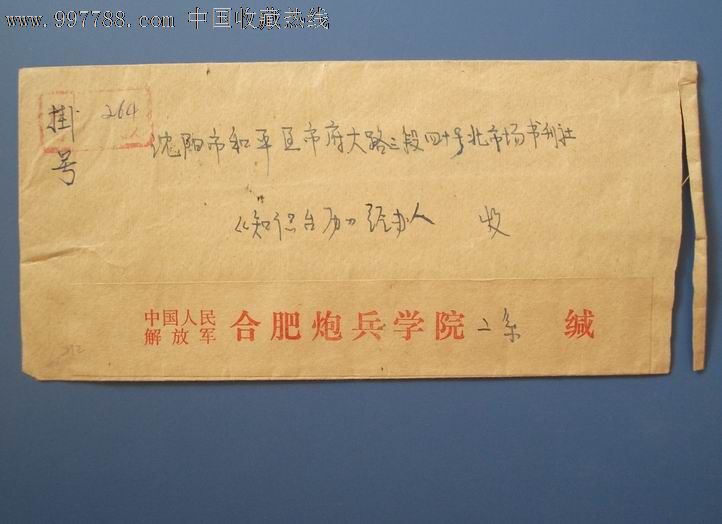 www.997788.com 中国收藏热线
挂号 264
沈阳市和平区市府大路三段四十号北市场书刊社
《知识台历》经办人 收
中国人民解放军 合肥炮兵学院 二系 缄
212